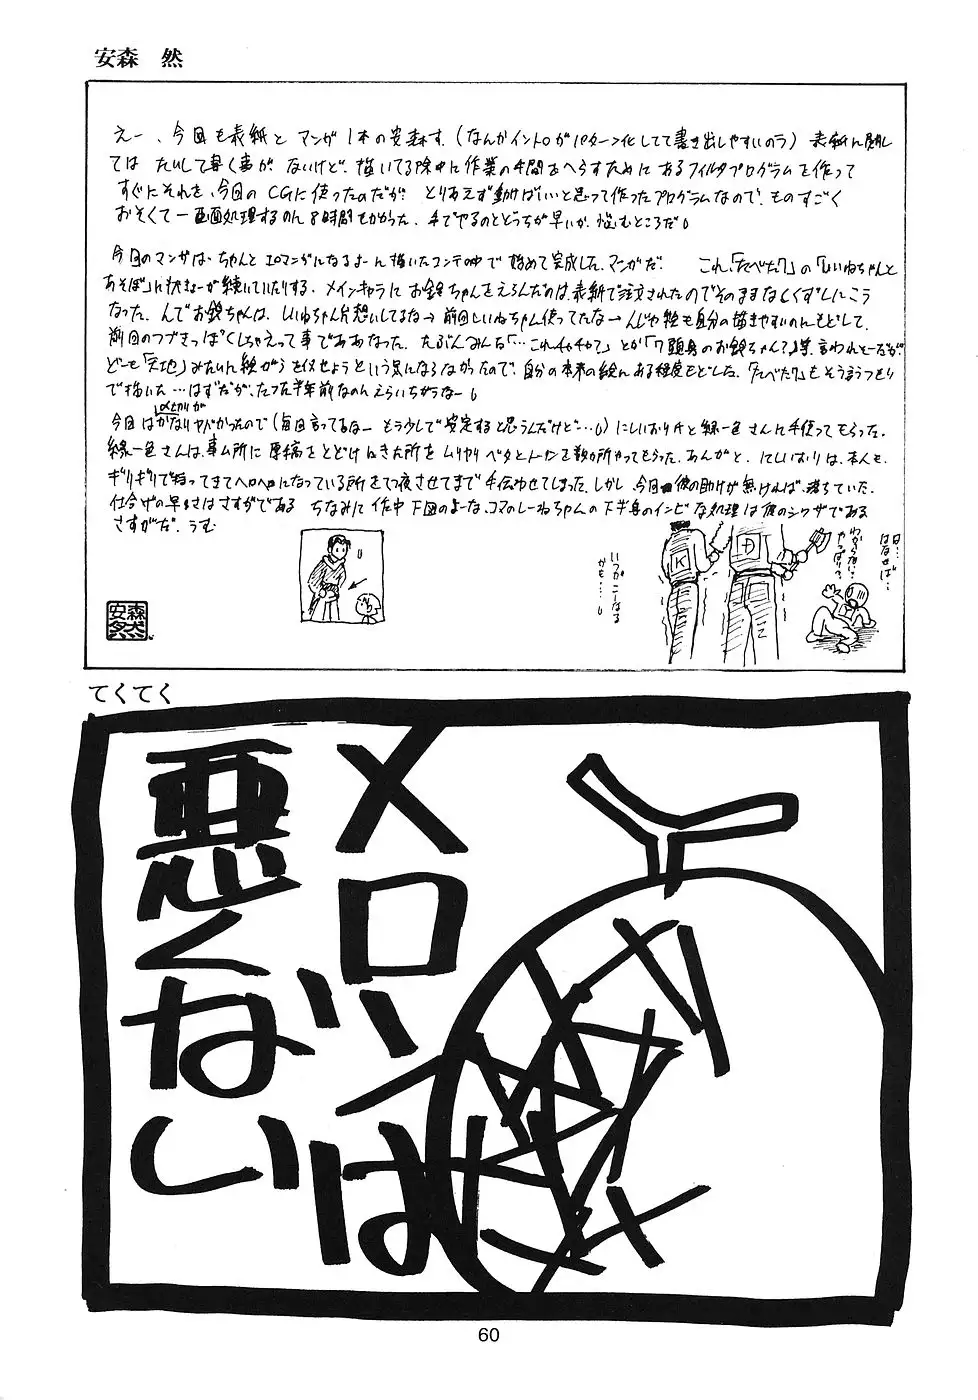 安森 然
えー、今回も表紙と マンガ1本の安森す (なんかイントロがパターン化してて書き出しやすいのう) 表紙に関し
ては たいして書く事が ないけど、描いてる際中に作業の手間をへらすために あるフィルタプログラムを作って
すぐにそれを、今回の CGに使ったのだが? とりあえず動けばいいと思って作ったプログラムなので、ものすごく
おそくて一画面処理するのに8時間もかかった。手でやるのとどっちが早いか 悩むところだ
今回のマンガは、ちゃんと エロマンガになるよーに描いたコンテの中で 始めて完成した、マンガだ! これ、「たべた?」の「しいねちゃんと
あそぼ」に状きょーが続いていたりする。メインキャラに お鈴ちゃんをえらんだのは、表紙で注文されたのでそのままなしくずしにこう
なった。んでお鈴ちゃんは、しいねちゃん片想いしてるな→前回しいねちゃん使ってたな→んじゃ絵も自分の描きやすいのにもどして、
前回のつづきっぽくしちゃえって事でああなった。たぶんみんな「…これチャチャ?」とか「7頭身のお鈴ちゃん?」等、言われそーだが
どーも「天地」みたいに絵がらを似せようという気にならなかったので、自分の本来の絵にある程度もどした。「たべた?」もそうまうつもり
で描いた…はずだが、たった半年前なのにえらいちがうなー
〆切りが
今回はかなりヤバかったので(毎回言ってるなー もう少しで安定すると思うんだけど…)にしいおりAと緑一色さんに手伝ってもらった。
緑一色さんは、事ム所に原稿をとどけにきた所を ムリヤリ ベタとトーンを数か所やってもらった。あんがと、にしいおりは、本人も、
ギリギリで持ってきてヘロヘロになっている所をてつ夜させてまで手伝わせてしまった。しかし、今回彼の助けが無ければ、落ちていた。
仕上げの早さはさすがである ちなみに 作中 下図のよーな、コマのしーねちゃんの下半身のインビな処理は彼のシワザである
さすがだ。うむ
いつかこーなる
かも…
K
D
Z
わからない…
やっぱり?
日…
はなせば…
安森
然
てくてく
メロンは
悪くない
60